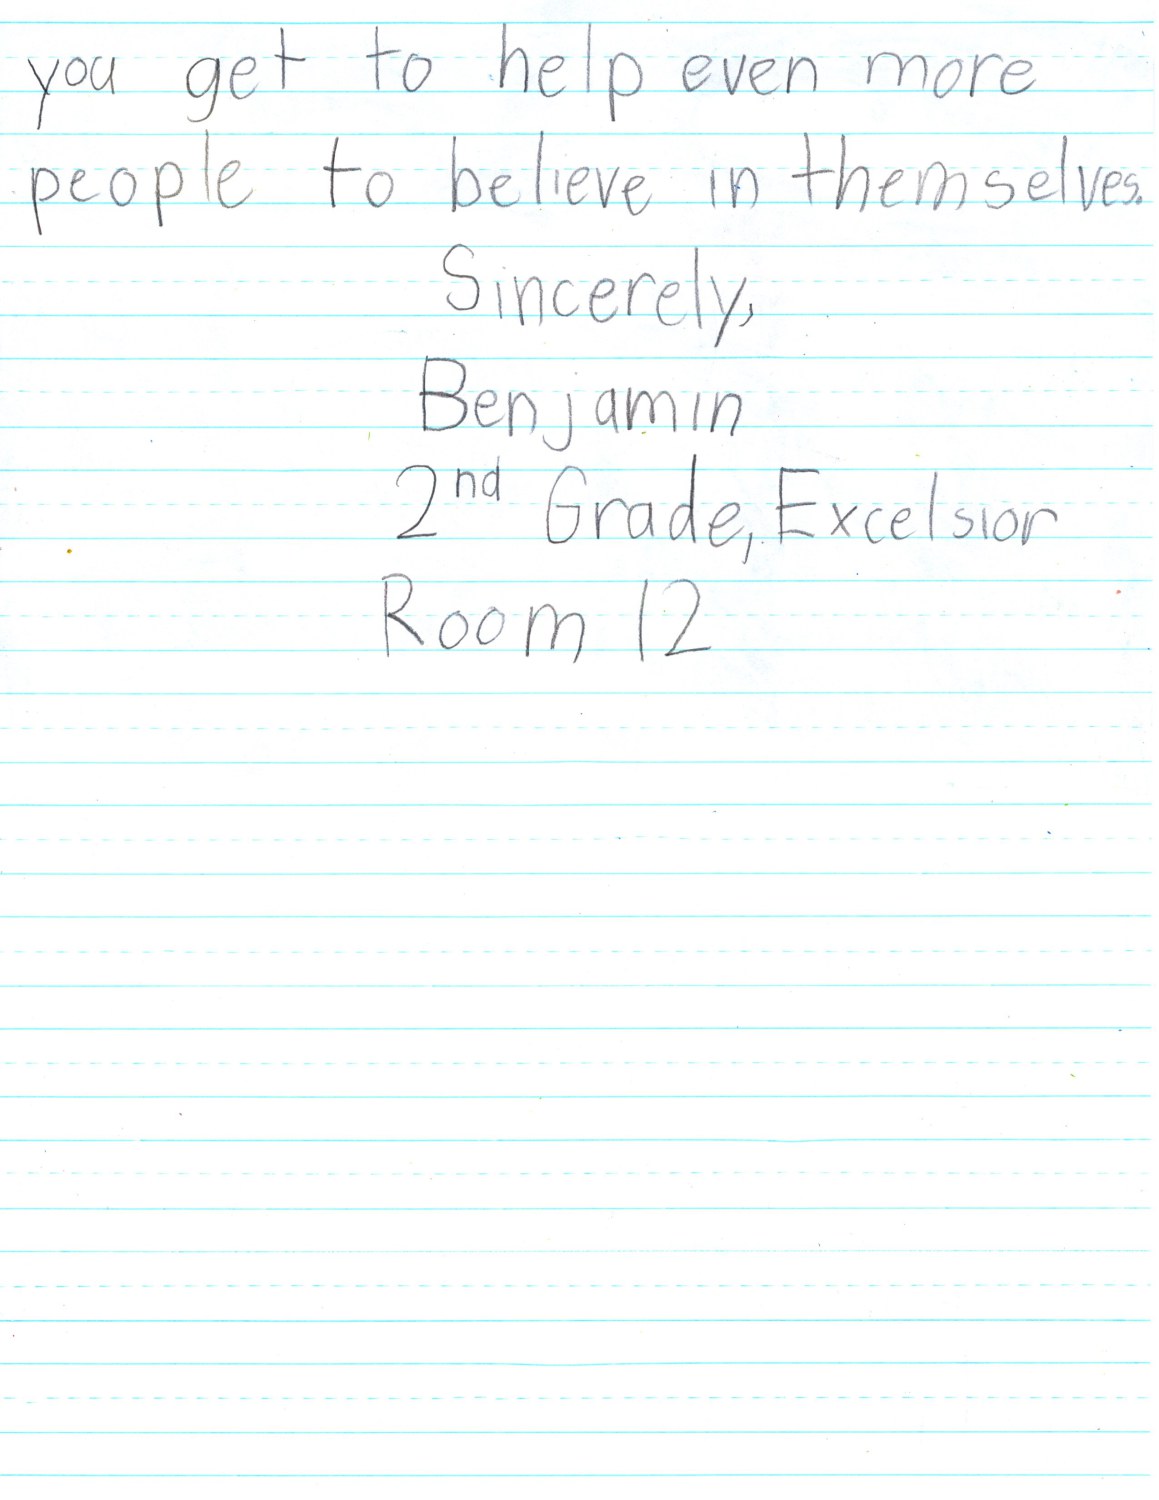 you get to help even more
people to believe in themselves.
Sincerely,
Benjamin
2nd Grade, Excelsior
Room 12